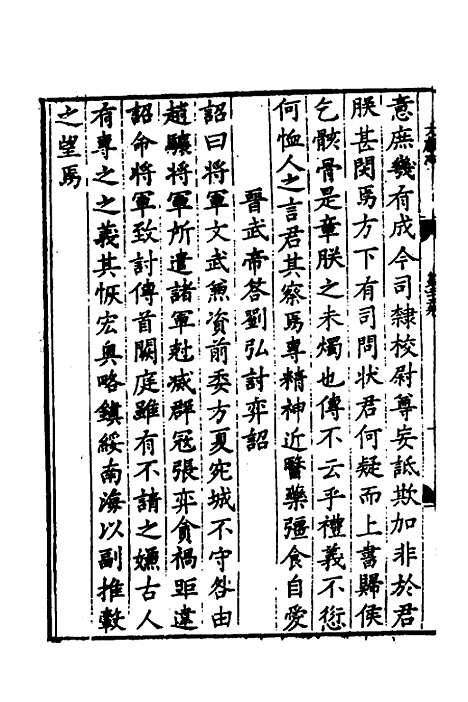 意庶幾有成今司隸校尉尊妄詆欺加非於君
朕甚閔焉方下有司問狀君何疑而上書歸侯
乞骸骨是章朕之未燭也傳不云乎禮義不愆
何恤人之言君其察焉專精神近醫藥彊食自愛
晉武帝答劉弘討弈詔
詔曰將軍文武兼資前委方夏宛城不守咎由
趙驤將軍所遣諸軍尅滅群寇張弈貪禍距違
詔命將軍致討傳首闕庭雖有不請之嫌古人
有專之之義其恢宏奥略鎮綏南海以副推轂
之望焉